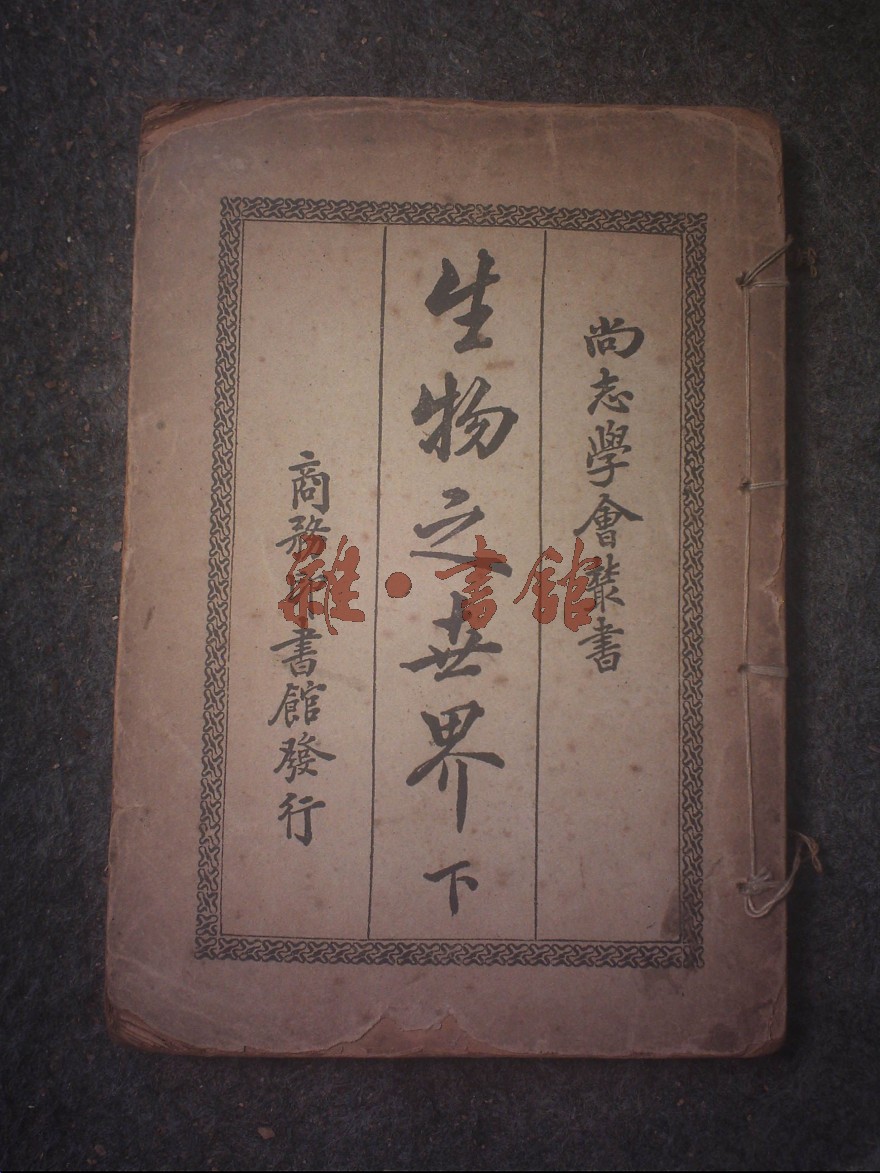 尚志學會叢書
生物之世界 下
商務印書館發行
雜·書館